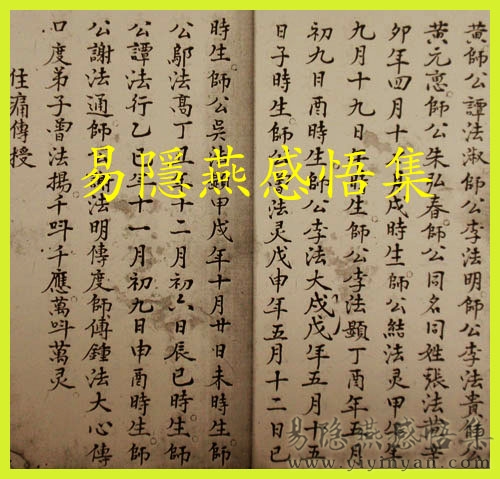 黄師公譚法淑師公李法明師公李法貴公
黄元恵師公朱弘春師公同名同姓張法辛
卯年四月十戌時生師公結法灵甲年
九月十九日生師公李法顕丁酉年五月
初九日酉時生師公李法大戍戊年五月十五
日子時生師公法灵戊申年五月十二日巳
時生師公吴顕甲戊年十月廿日未時生師
公鄔法高丁丑年十二月初六日辰巳時生師
公譚法行乙巳年十一月初九日申酉時生師
公謝法通師法明傳度師傅鍾法大心傳
口度弟子曽法揚千呌千應萬呌萬灵
任痛傳授
易隱燕感悟集
易隱燕感悟集
www.yiyinyan.com